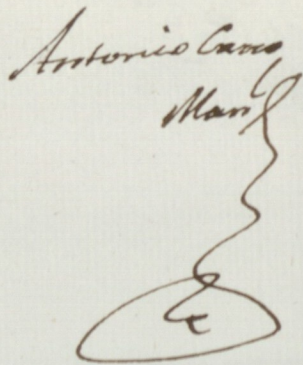 Antonio Cano
Man